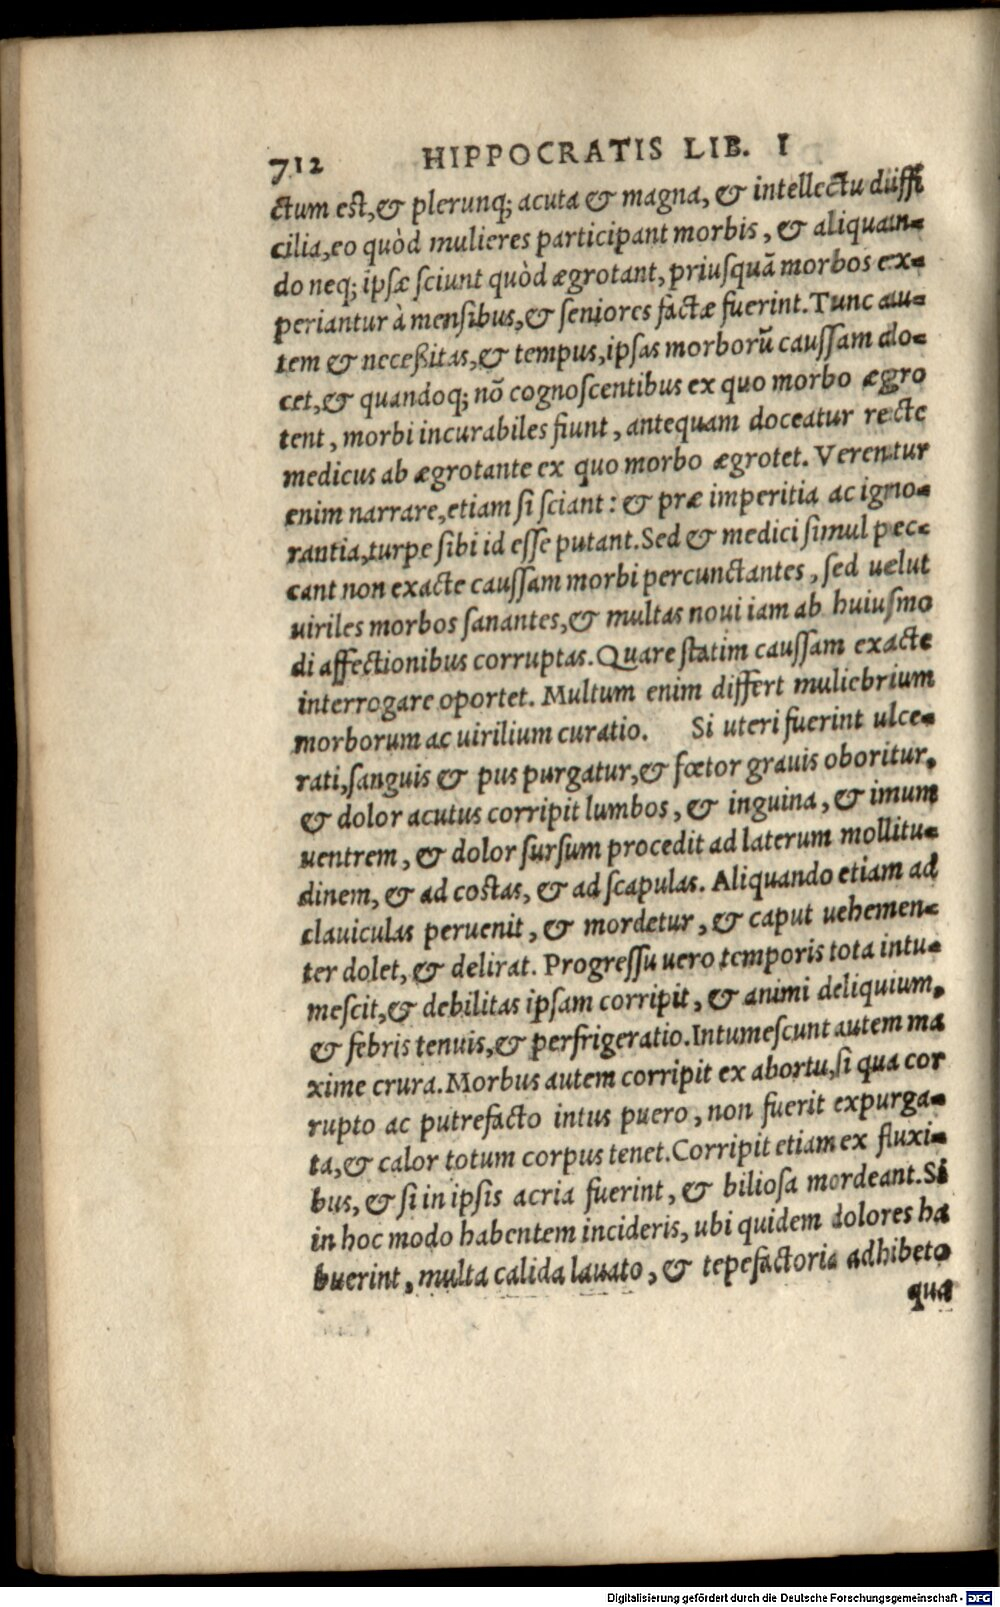 712 HIPPOCRATIS LIB. I
ctum est,& plerunq; acuta & magna, & intellectu diffi
cilia,eo quòd mulieres participant morbis, & aliquan-
do neq; ipsæ sciunt quòd ægrotant, priusquã morbos ex-
periantur à mensibus,& seniores factæ fuerint. Tunc au-
tem & necessitas,& tempus, ipsas morborũ caussam do-
cet,& quandoq; nõ cognoscentibus ex quo morbo ægro
tent, morbi incurabiles fiunt, antequam doceatur recte
medicus ab ægrotante ex quo morbo ægrotet. Verentur
enim narrare, etiam si sciant: & præ imperitia ac igno-
rantia,turpe sibi id esse putant. Sed & medici simul pec-
cant non exacte caussam morbi percunctantes, sed uelut
uiriles morbos sanantes,& multas noui iam ab huiusmo
di affectionibus corruptas. Quare statim caussam exacte
interrogare oportet. Multum enim differt muliebrium
morborum ac uirilium curatio. Si uteri fuerint ulce-
rati,sanguis & pus purgatur,& fœtor grauis oboritur,
& dolor acutus corripit lumbos, & inguina, & imum
uentrem, & dolor sursum procedit ad laterum mollitu-
dinem, & ad costas, & ad scapulas. Aliquando etiam ad
clauiculas peruenit, & mordetur, & caput uehemen-
ter dolet, & delirat. Progressu uero temporis tota intu-
mescit,& debilitas ipsam corripit, & animi deliquium,
& febris tenuis,& perfrigeratio. Intumescunt autem ma
xime crura. Morbus autem corripit ex abortu,si qua cor
rupto ac putrefacto intus puero, non fuerit expurga-
ta,& calor totum corpus tenet. Corripit etiam ex fluxi-
bus, & si in ipsis acria fuerint, & biliosa mordeant. Si
in hoc modo habentem incideris, ubi quidem dolores ha
buerint, multa calida lauato, & tepefactoria adhibeto
qua
Digitalisierung gefördert durch die Deutsche Forschungsgemeinschaft - DFG